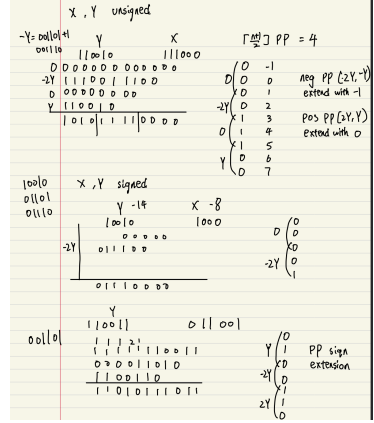 X , Y unsigned
-Y = 001101+1
001110
Y X
110010 111000
0 0 0 0 0 0 0 0 0 0 0 0 0
-2Y 1 1 1 0 0 1 1 1 0 0
0 0 0 0 0 0 0 0 0
Y 1 1 0 0 1 0
1 0 1 0 1 1 1 1 0 0 0 0
⌈(n+1)/2⌉ PP = 4
0 -1
0 0 0
0 1
-2Y 0 2
1 3
0 1 4
1 5
Y 0 6
0 7
neg PP (-2Y, -Y)
extend with -1
pos PP (2Y, Y)
extend with 0
10010
01101
01110
X , Y signed
Y -14 X -8
10010 1000
0 0 0 0 0
-2Y 0 1 1 1 0 0
0 1 1 1 0 0 0 0
0 0
0
0
-2Y 0
1
Y
110011 011001
001101
1 1 1 2 1
1 1 1 1 1 1 1 0 0 1 1
0 0 0 0 1 1 0 1 0
1 1 0 0 1 1 0
1 1 0 1 0 1 1 1 0 1 1
0
Y 1
0
-2Y 0
1
2Y 1
0
PP sign
extension